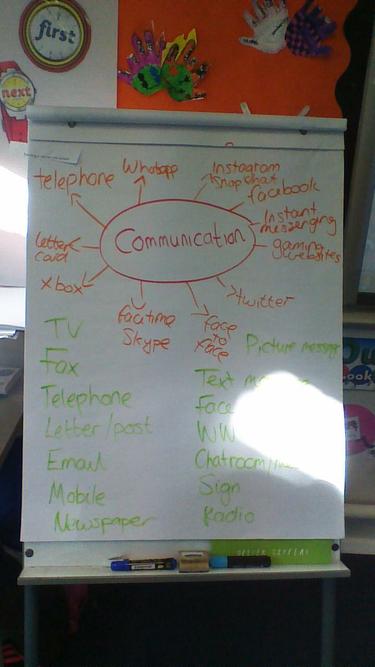 first
next
telephone
Whatsapp
Instagram
Snapchat
facebook
Instant
messenging
gaming
websites
Communication
letter
card
xbox
twitter
facetime
Skype
face
to
face
TV
Fax
Telephone
Letter/post
Email
Mobile
Newspaper
Picture
Text
Face
WW
Chatroom/
Sign
Radio